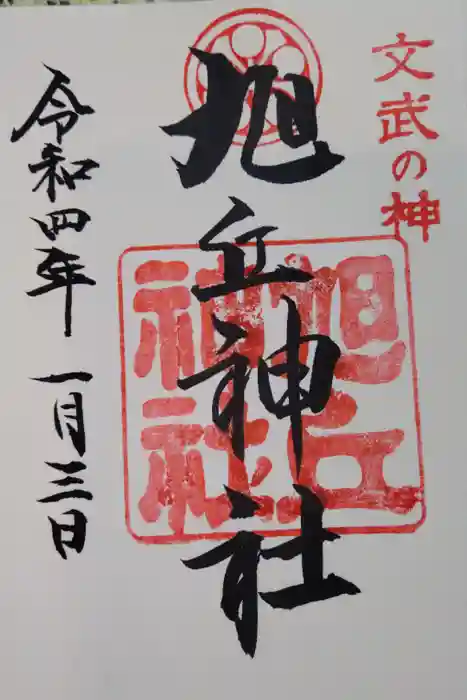 文武の神
旭丘神社
旭丘
神社
令和四年一月三日